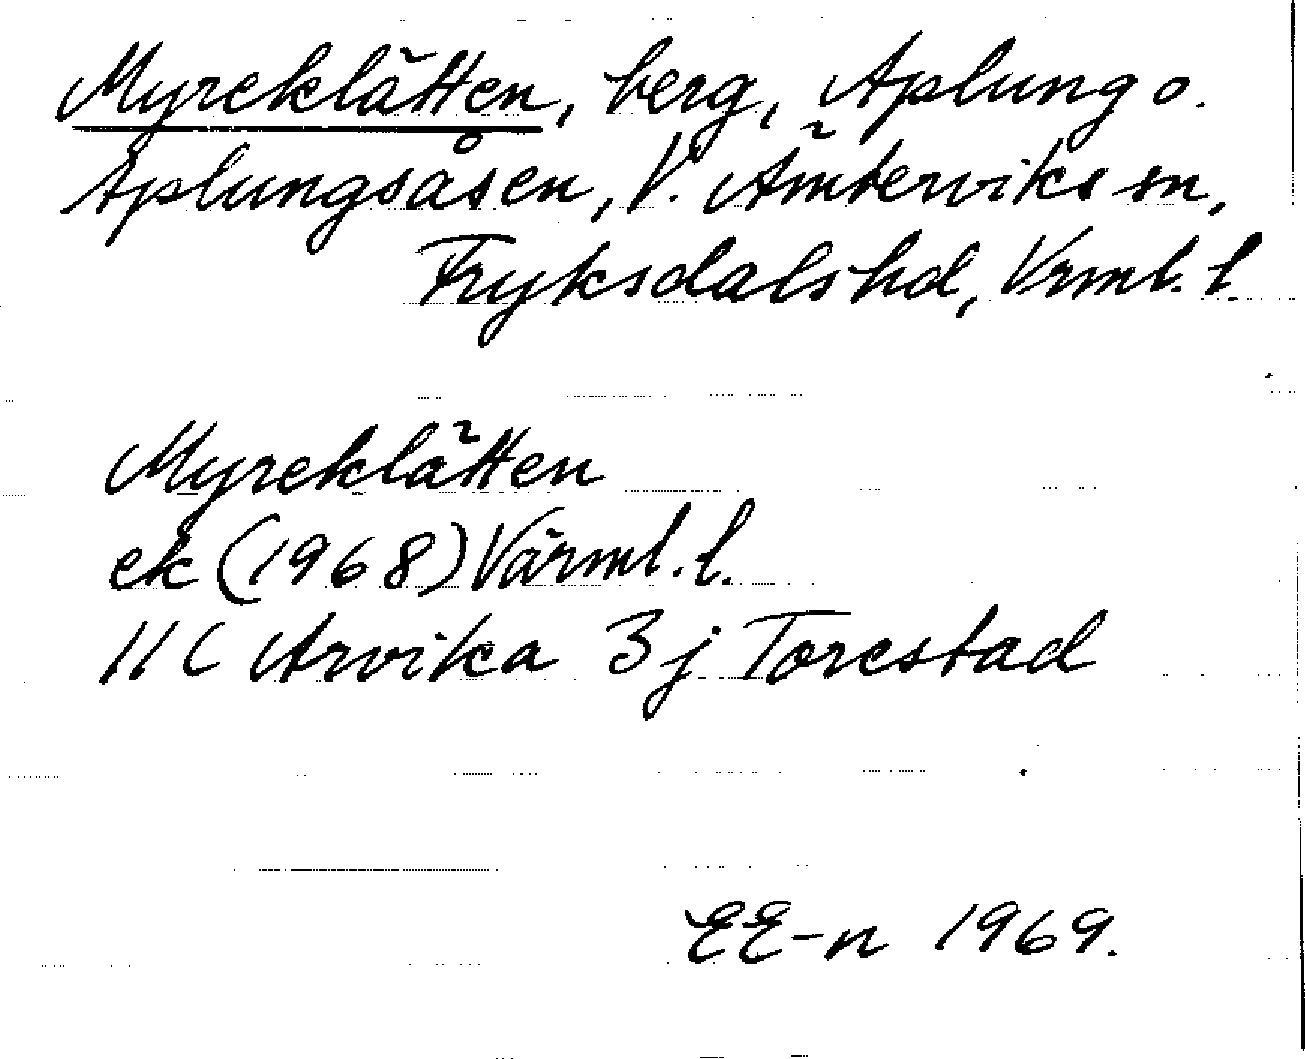 Myreklätten, berg, Aplung o.
Aplungsåsen, V. Ämterviks sn,
Fryksdals hd, Vrml. l.
Myreklätten
ek (1968) Värml. l.
11 C Arvika 3 j Torestad
EE-n 1969.